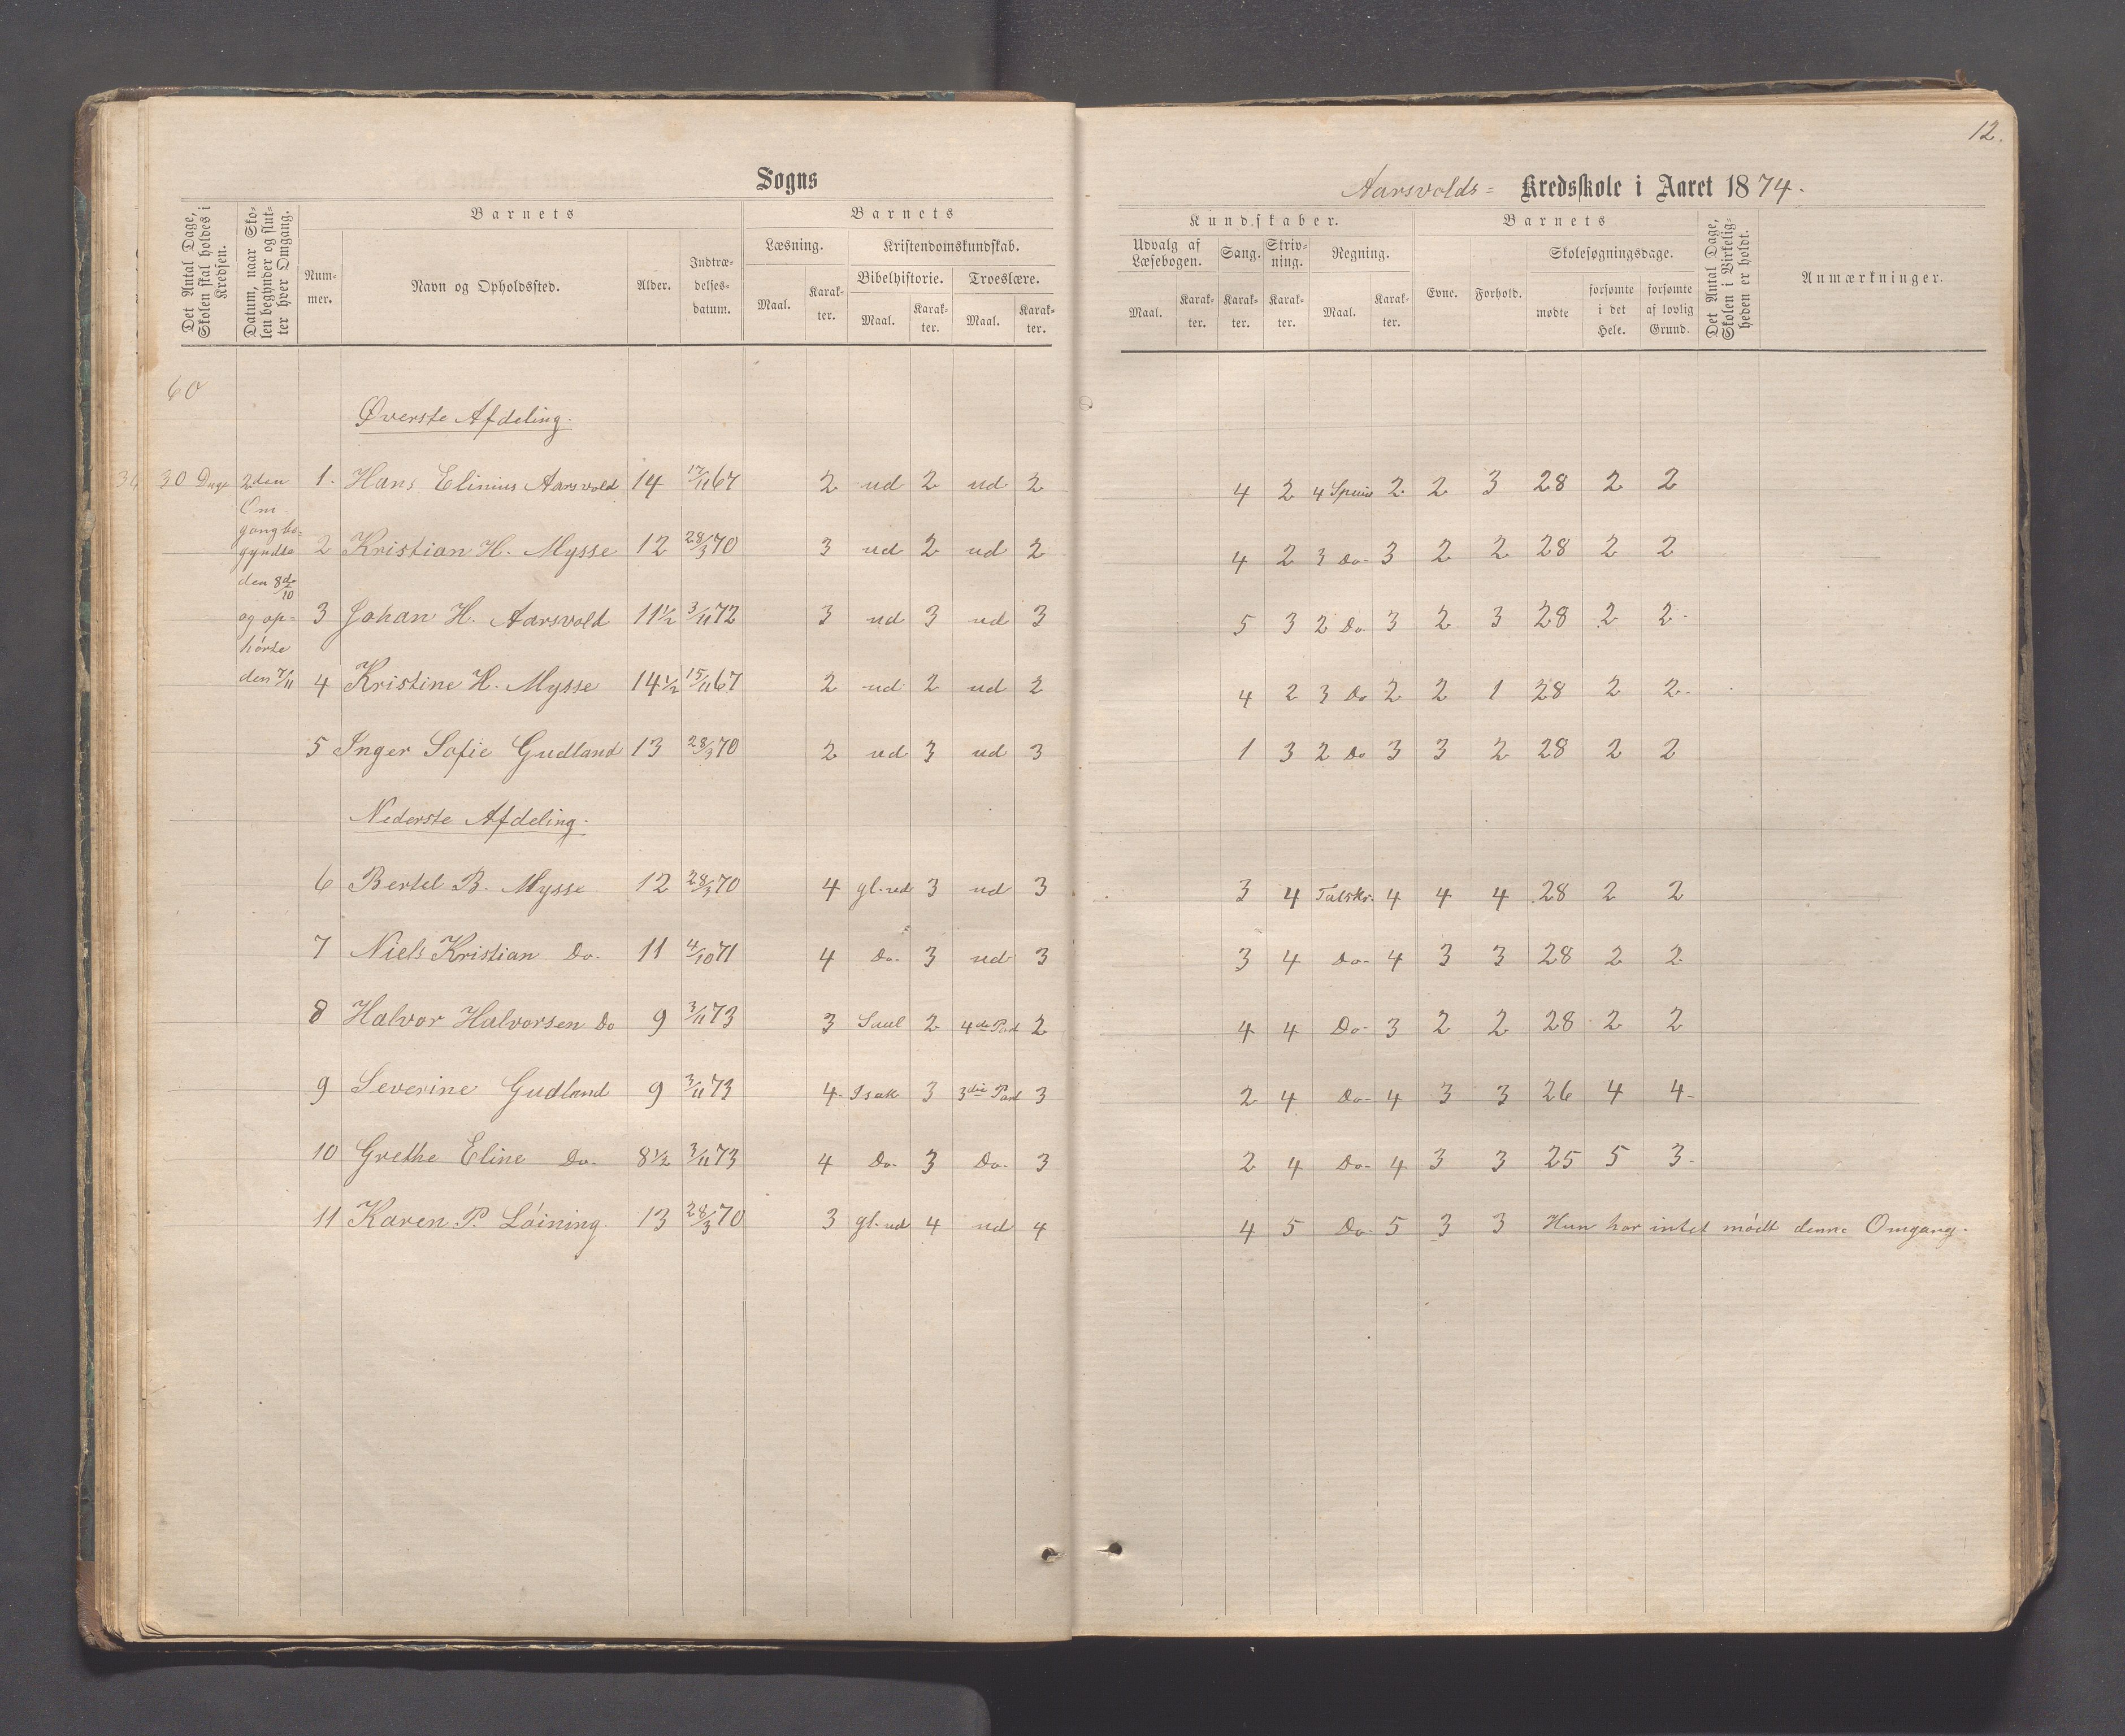 12.
Sogns
Aarsvolds= Kredsskole i Aaret 1874.
Det Antal Dage, Skolen skal holdes i Kredsen.
Datum, naar Skolen begynder og slutter hver Omgang.
Barnets
Nummer.
Navn og Opholdssted.
Alder.
Indtrædelsesdatum.
Barnets
Læsning.
Maal.
Karakter.
Kristendomskundskab.
Bibelhistorie.
Maal.
Karakter.
Troeslære.
Maal.
Karakter.
Kundskaber.
Udvalg af Læsebogen.
Maal.
Karakter.
Sang.
Karakter.
Skrivning.
Karakter.
Regning.
Maal.
Karakter.
Barnets
Evne.
Forhold.
Skolesøgningsdage.
mødte
forsømte i det Hele.
forsømte af lovlig Grund.
Det Antal Dage, Skolen i Virkeligheden er holdt.
Anmærkninger.
60
Øverste Afdeling.
30 Dage
2den
Om-
gang be-
gyndte
den 8de/10
og op-
hørte
den 7/11
1. Hans Elinius Aarsvold 14 17/11 67 2 ud 2 ud 2 4 2 4 Spuis 2 2 3 28 2 2
2 Kristian H. Mysse 12 28/3 70 3 ud 2 ud 2 4 2 3 Do. 3 2 2 28 2 2
3 Johan H. Aarsvold 11 1/2 3/11 72 3 ud 3 ud 3 5 3 2 Do. 3 2 3 28 2 2
4 Kristine H. Mysse 14 1/2 15/11 67 2 ud 2 ud 2 4 2 3 Do 2 2 1 28 2 2
5 Inger Sofie Gudland 13 28/3 70 2 ud 3 ud 3 1 3 2 Do 3 3 2 28 2 2
Nederste Afdeling.
6 Bertel B. Mysse 12 28/3 70 4 gl. ud 3 ud 3 3 4 Talskr. 4 4 4 28 2 2
7 Niels Kristian Do. 11 4/10 71 4 Do. 3 ud 3 3 4 Do. 4 3 3 28 2 2
8 Halvor Halvorsen Do 9 3/11 73 3 Saul 2 4de Part 2 4 4 Do. 3 2 2 28 2 2
9 Severine Gudland 9 3/11 73 4 Isak 3 3die Part 3 2 4 Do. 4 3 3 26 4 4
10 Grethe Eline Do. 8 1/2 3/11 73 4 Do. 3 Do. 3 2 4 Do. 4 3 3 25 5 3
11 Karen P. Løining. 13 28/3 70 3 gl. ud 4 ud 4 4 5 Do. 5 3 3 Hun har intet mødt denne Omgang.